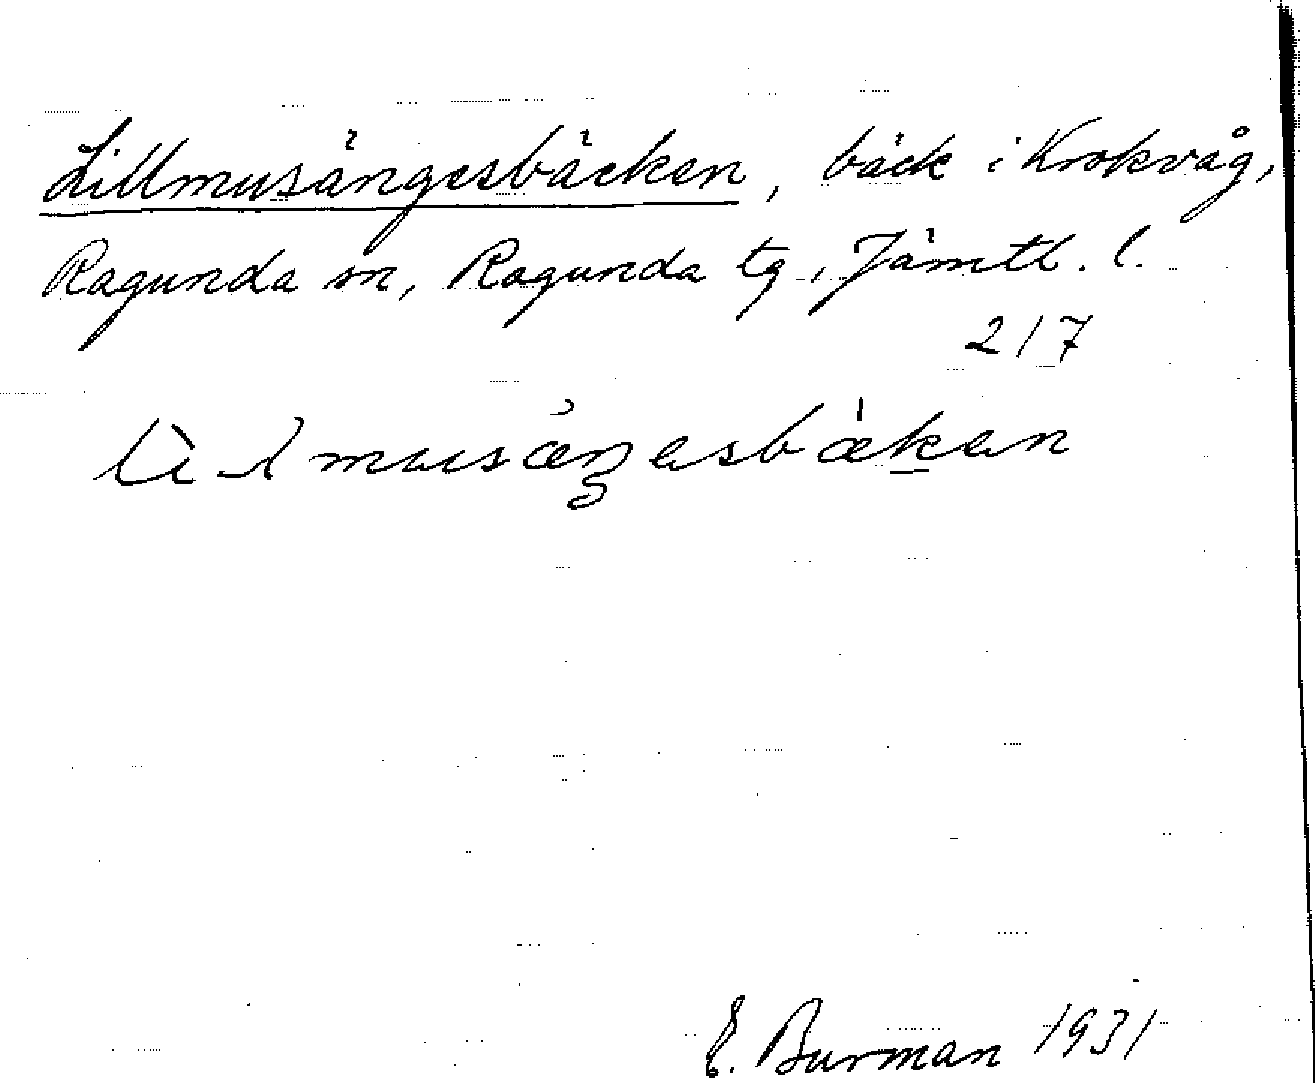 Lillmusängesbäcken, bäck i Krokvåg,
Ragunda sn, Ragunda tg, Jämtl. l.
217
E. Burman 1931